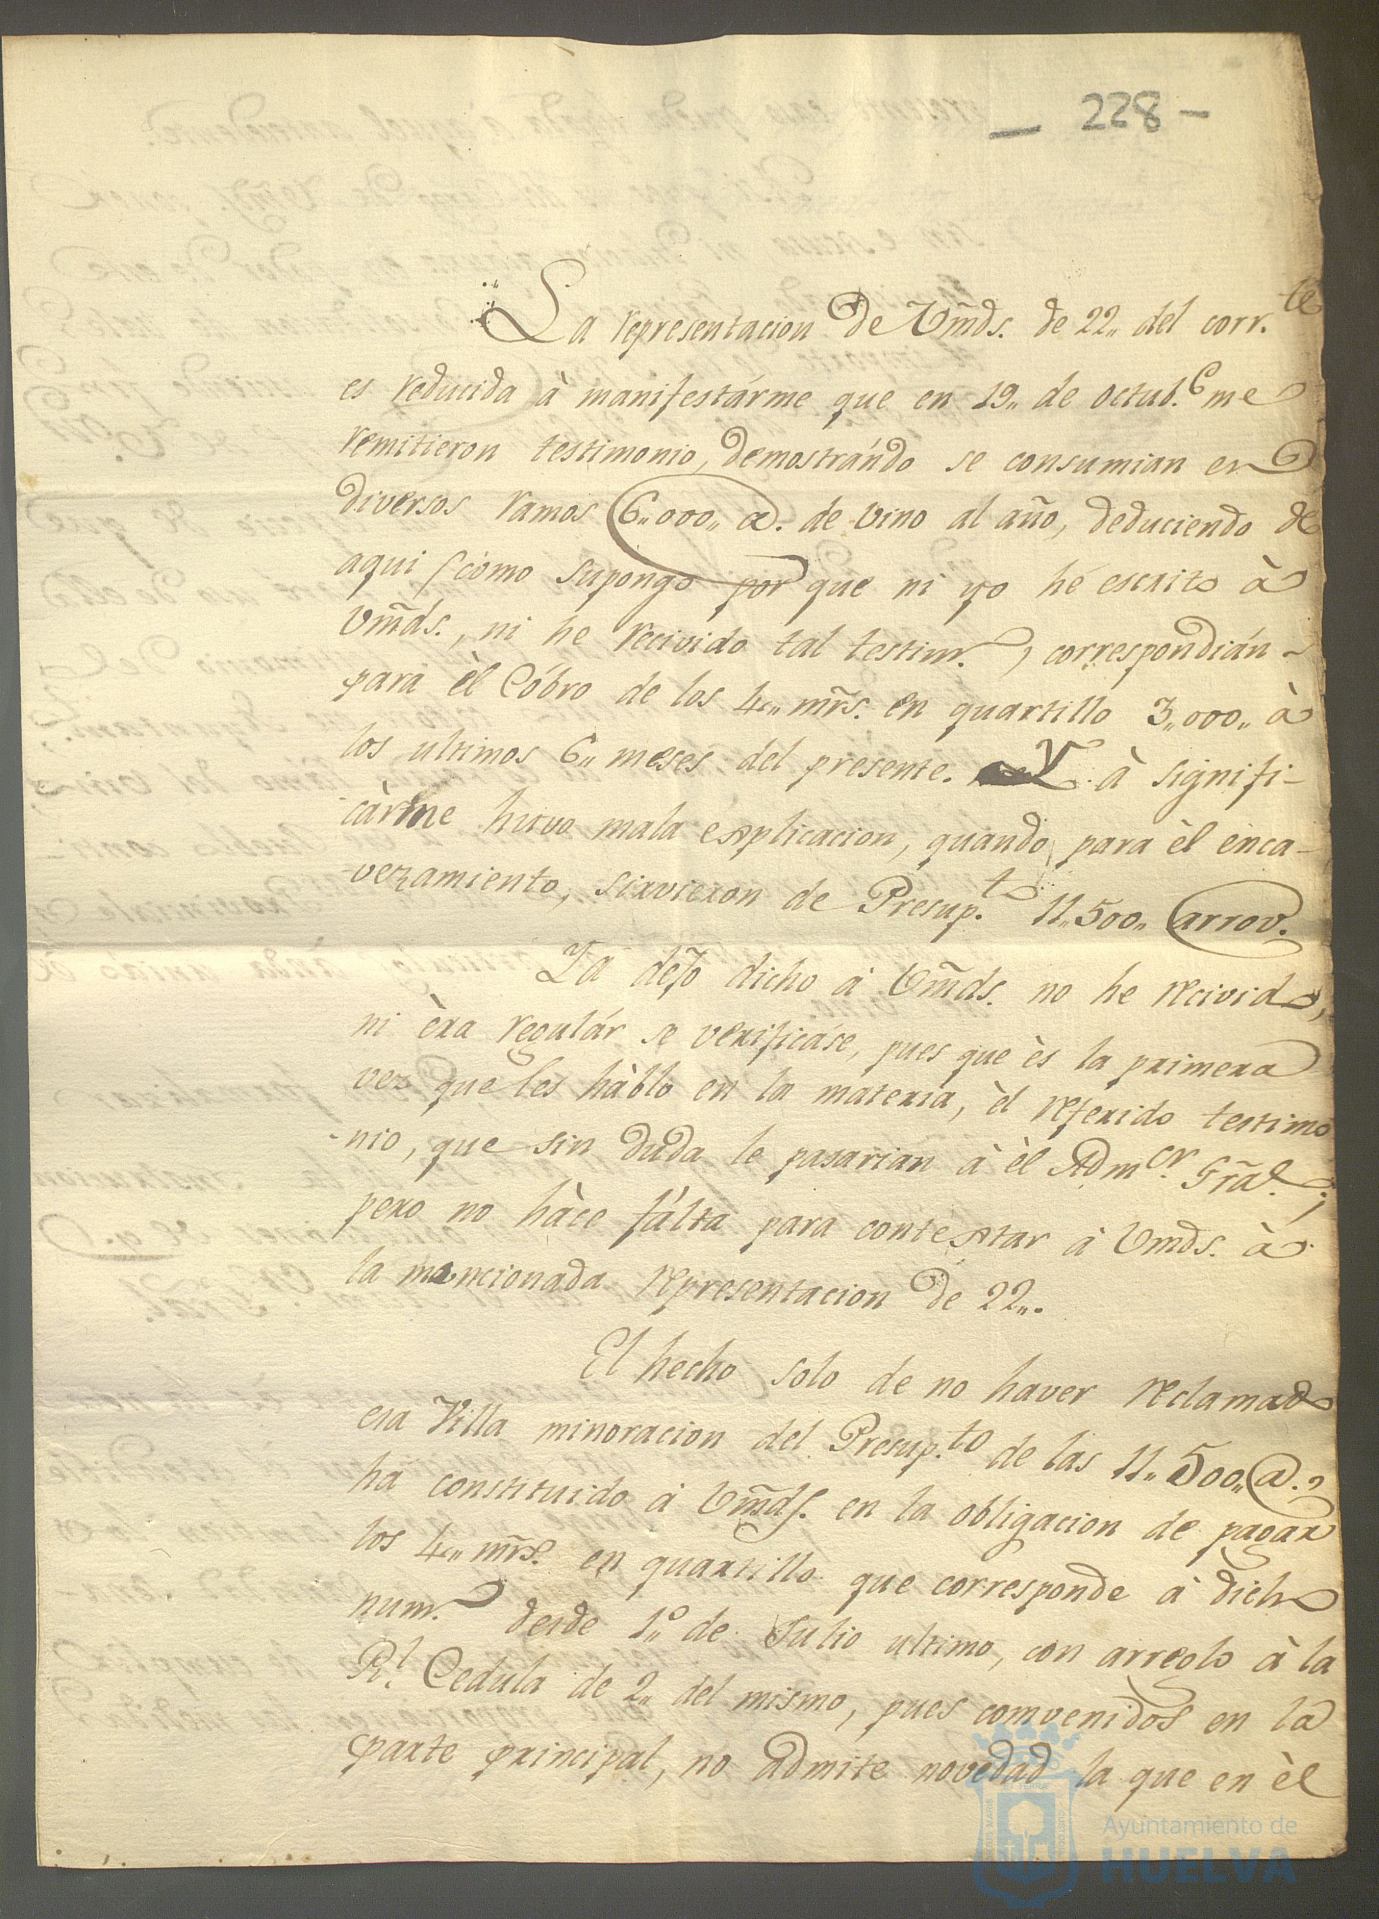 — 228 —
La representacion de Vm̃ds. de 22,, del corr.te
es reducida à manifestárme que en 19,, de Octub.e me
remitieron testimonio, demostrándo se consumian en
diversos ramos 6,,000,, @. de vino al año, deduciendo de
aqui /como supongo por que ni yo hé escrito à
Vm̃ds., ni he recivido tal testim.o, correspondián
para èl Cóbro de los 4,, mr̃s. en quartillo 3,,000,, à
los ultimos 6,, meses del presente. Y à signifi-
càrme huvo mala esplicacion, quando para èl enca-
vezamiento, sirvieron de Presup.to 11,,500,, arrov.
Ya dejo dicho à Vm̃ds. no he recivido,
ni èra regulár se verificáse, pues que ès la primera
vez que les hàblo en la materia, èl referido testimo
-nio, que sin duda le pasarian à èl Adm.or Gr̃al.;
pero no hàce fálta para contestar à Vmds. à
la mencionada representacion de 22,,.
El hecho solo de no haver reclamado
esa Villa minoracion del Presup.to de las 11,,500,, @.,
ha constituido à Vm̃ds. en la obligacion de pagar
los 4,, mr̃s. en quartillo que corresponde à dicho
num.o desde 1,,º de Julio ultimo, con arreglo à la
R.l Cedula de 2,, del mismo, pues comvenidos en la
parte principal, no admite novedad la que en èl
Ayuntamiento de
HUELVA